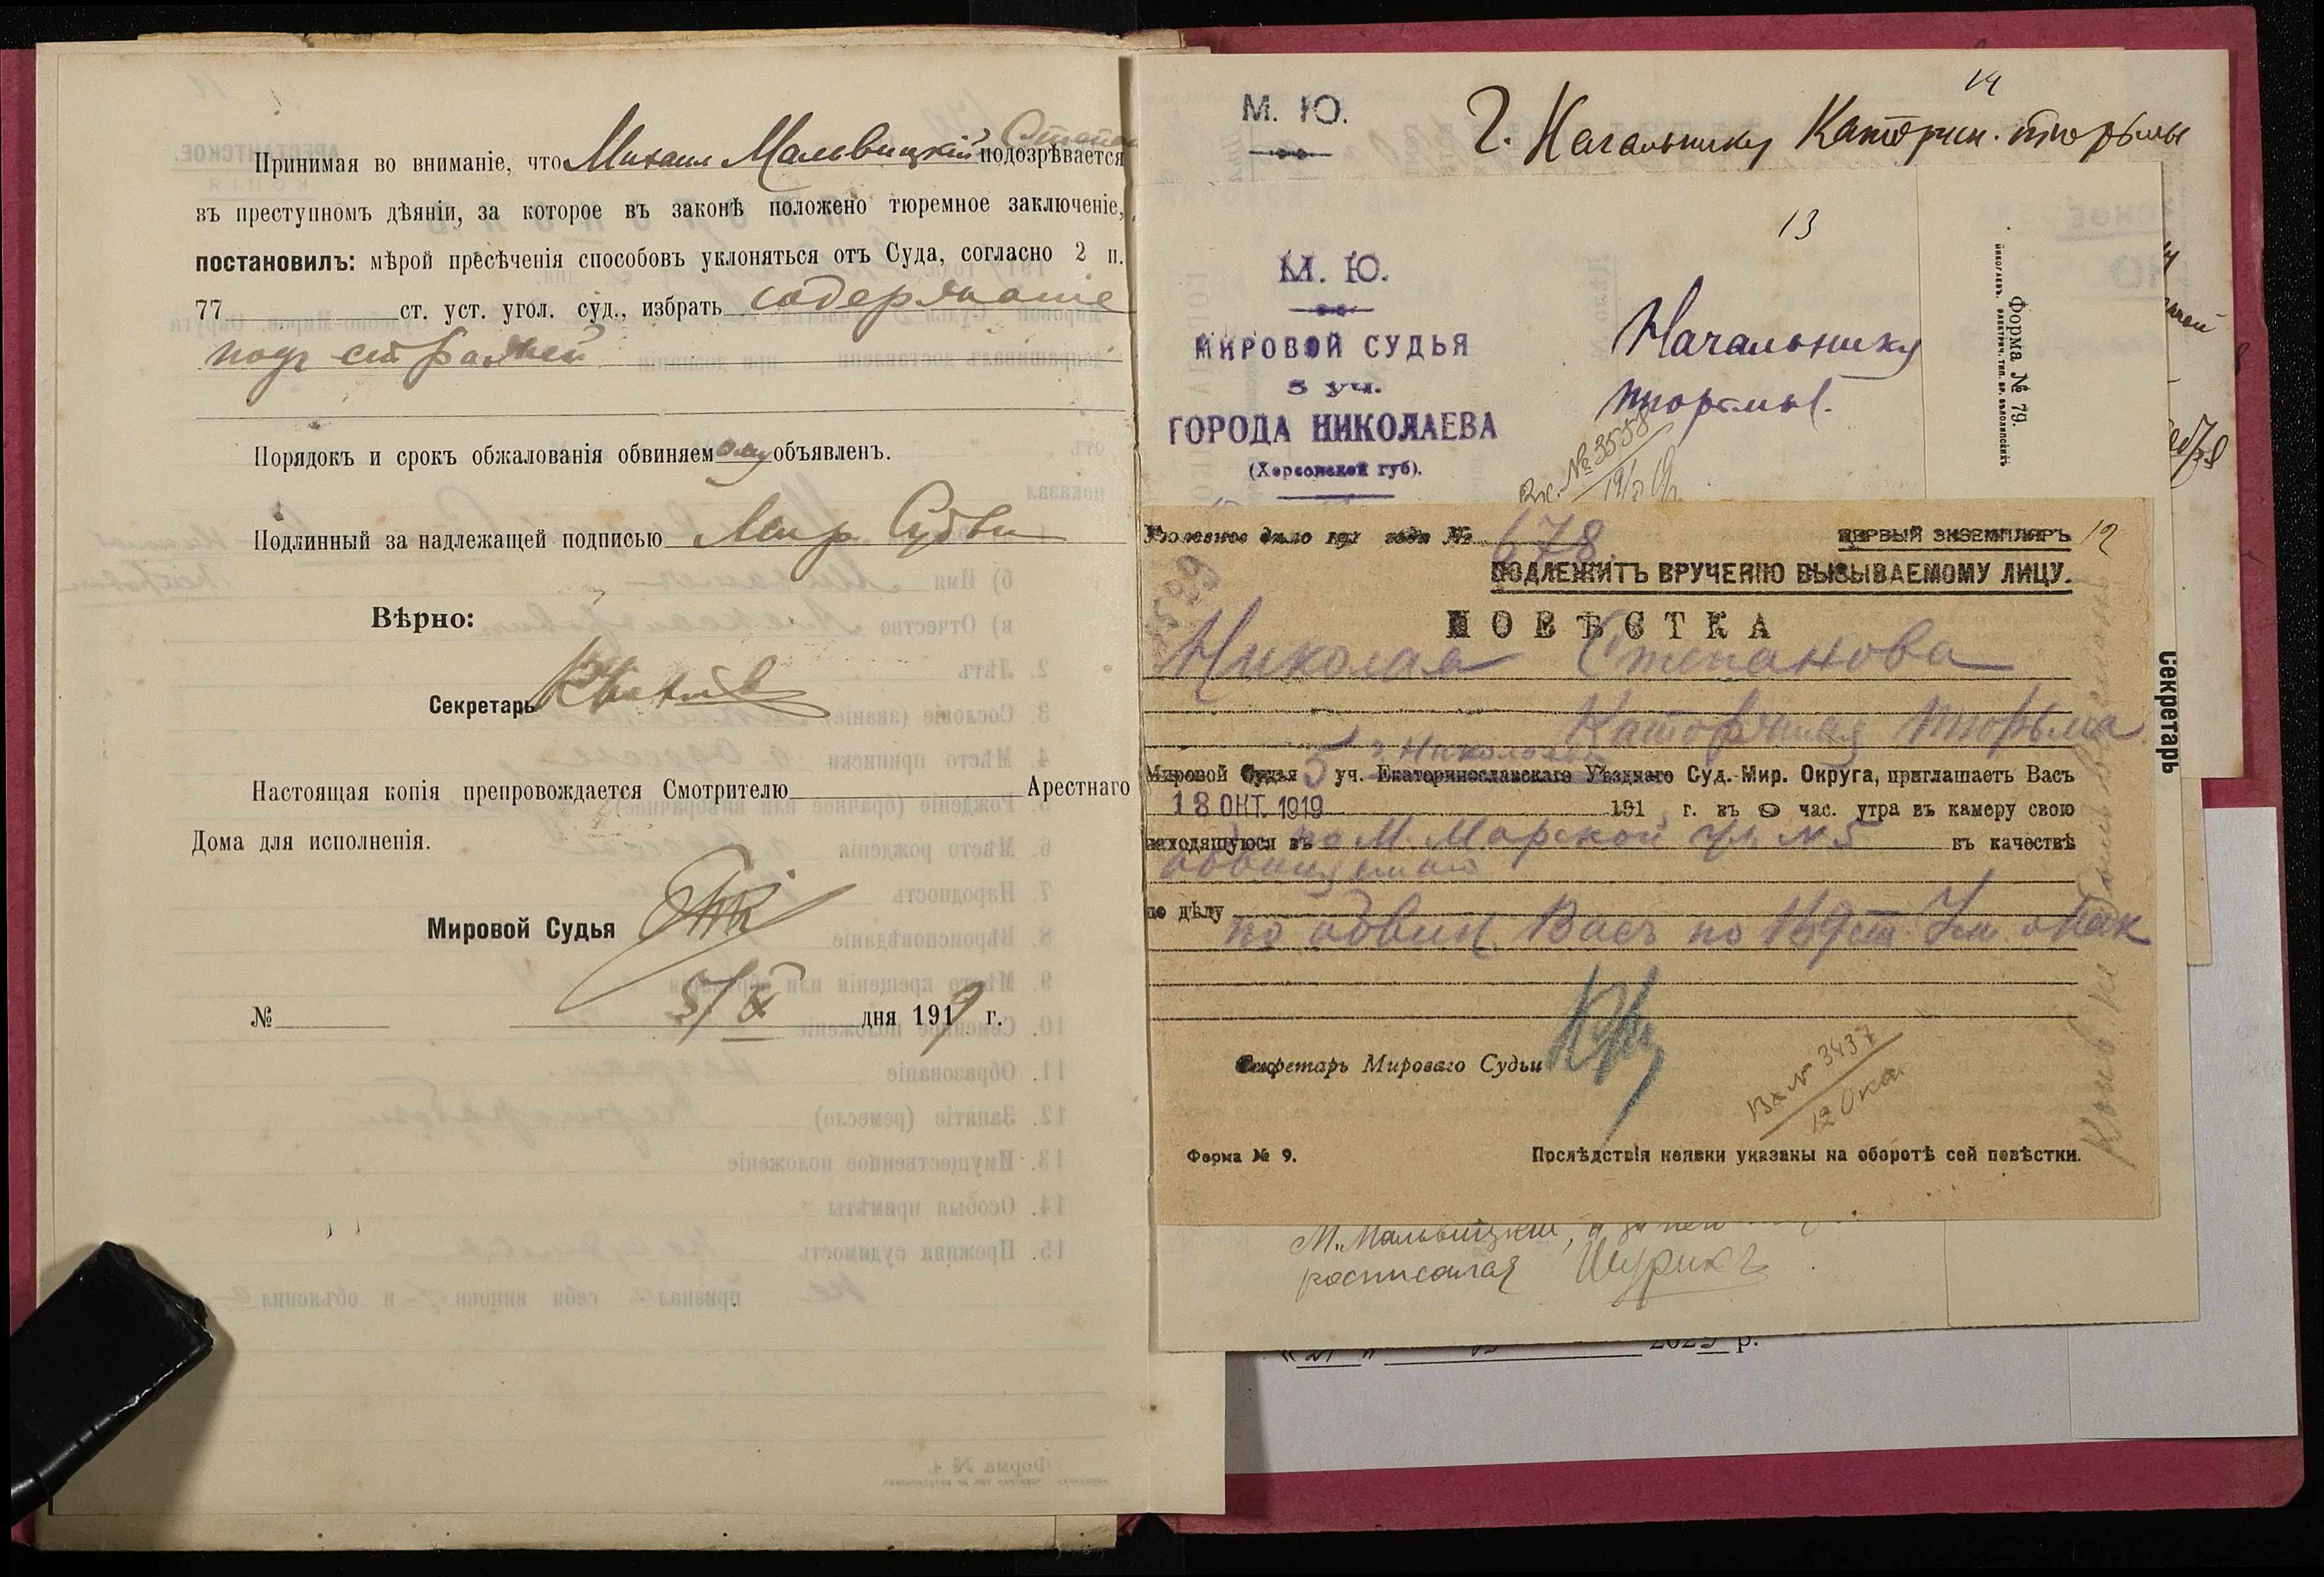 Принимая во вниманіе, что Михаил Мальвицкій подозрѣвается
въ преступномъ дѣяніи, за которое въ законѣ положено тюремное заключеніе,
постановилъ: мѣрой пресѣченія способовъ уклоняться отъ Суда, согласно 2 п.
77 ст. уст. угол. суд., избрать содержаніе
подъ стражей
Порядокъ и срокъ обжалованія обвиняемому объявленъ.
Подлинный за надлежащей подписью Мир. Судьи
Вѣрно:
Секретарь
Настоящая копія препровождается Смотрителю Арестнаго
Дома для исполненія.
Мировой Судья
5/X дня 1919 г.
№
14
М. Ю.
Г. Начальнику Каторжн. тюрьмы
13
М. Ю.
МИРОВОЙ СУДЬЯ
5 уч.
ГОРОДА НИКОЛАЕВА
(Херсонской губ).
Начальнику
тюрьмы.
Вх. № 3558
Форма № 79.
Секретарь
12
№ 678.
ПЕРВЫЙ ЭКЗЕМПЛЯРЪ
ПОДЛЕЖИТЪ ВРУЧЕНІЮ ВЫЗЫВАЕМОМУ ЛИЦУ.
ПОВѢСТКА
Николая Степанова
Каторжная тюрьма
5 г. Николаева
Мировой Судья уч. Екатеринославскаго Уѣзднаго Суд.-Мир. Округа, приглашаетъ Васъ
18 ОКТ. 1919 191 г. въ 9 час. утра въ камеру свою
находящуюся въ по М. Морской ул. № 5 въ качествѣ
обвиняемаго
по дѣлу
по обвин. Васъ по 169 ст. Уст. о Нак
Секретарь Мироваго Судьи
Вх № 3437
12 Окт.
Форма № 9.
Послѣдствія неявки указаны на оборотѣ сей повѣстки.
М. Мальвицкій, а за него
росписался Шурикъ